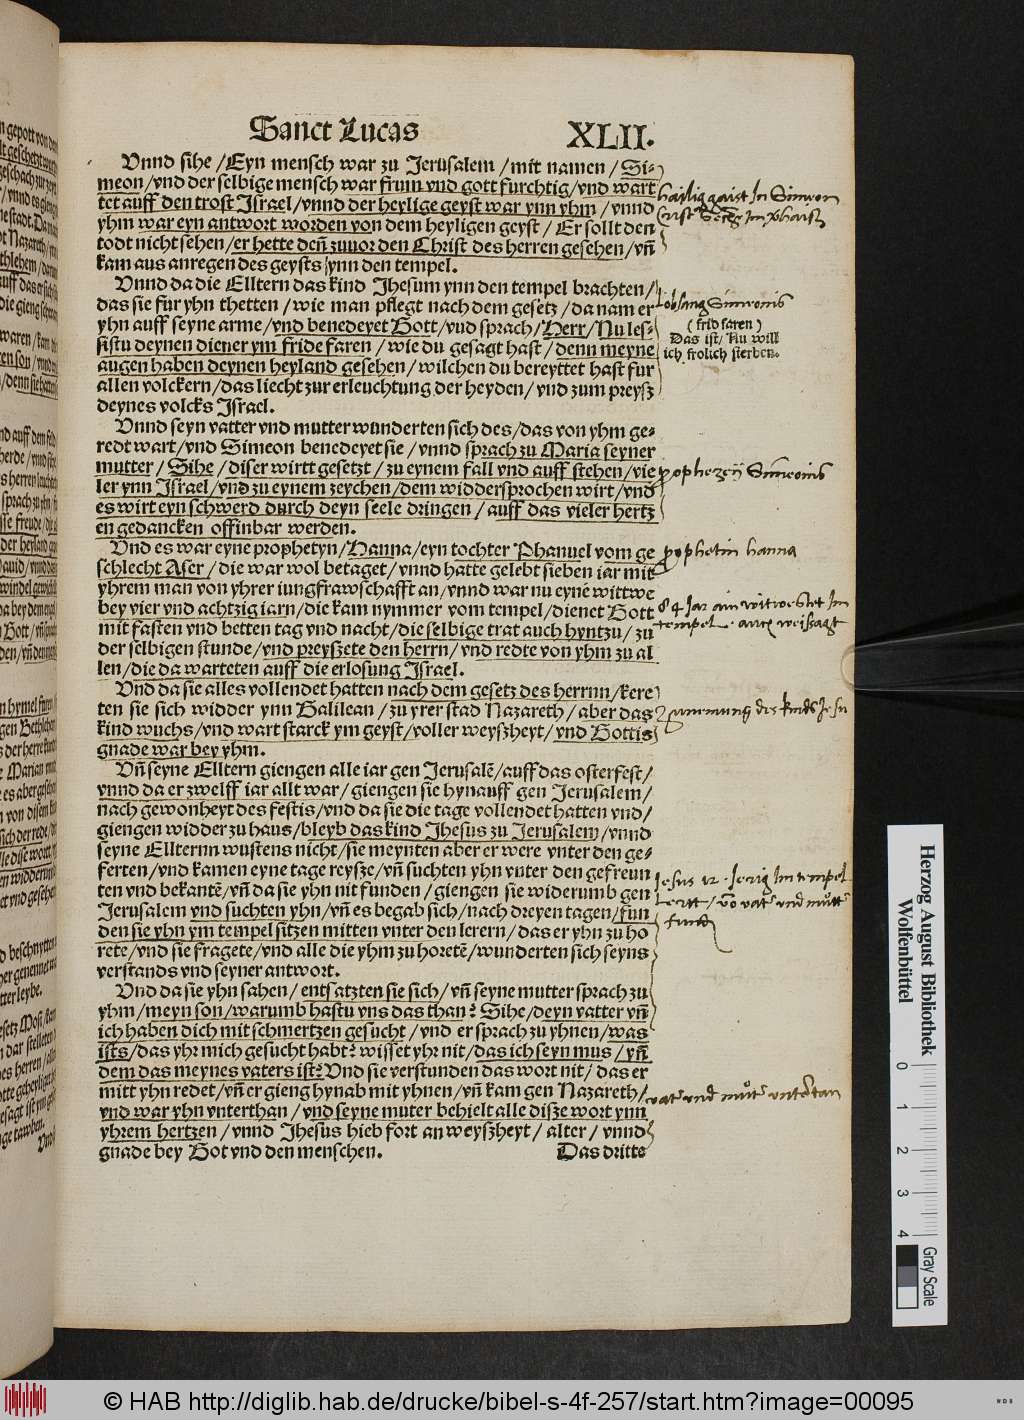 Sanct Lucas XLII.
Vnnd sihe /Eyn mensch war zu Jerusalem /mit namen /Si-
meon/vnd der selbige mensch war frum vnd gott furchtig/vnd wart
tet auff den trost Israel/vnnd der heylige geyst war ynn yhm /vnnd
yhm war eyn antwort worden von dem heyligen geyst /Er sollt den
todt nicht sehen/er hette deñ zuuor den Christ des herren gesehen/vñ
kam aus anregen des geysts ynn den tempel.
Vnnd da die Elltern das kind Jhesum ynn den tempel brachten/
das sie fur yhn thetten /wie man pflegt nach dem gesetz /da nam er
yhn auff seyne arme/vnd benedeyet Gott/vnd sprach/Herr/Nu les-
sistu deynen diener ym fride faren /wie du gesagt hast/denn meyne
augen haben deynen heyland gesehen/wilchen du bereyttet hast fur
allen volckern/das liecht zur erleuchtung der heyden/vnd zum preysz
deynes volcks Israel.
Vnnd seyn vatter vnd mutter wunderten sich des/das von yhm ge-
redt wart/vnd Simeon benedeyet sie /vnnd sprach zu Maria seyner
mutter /Sihe /diser wirtt gesetzt /zu eynem fall vnd auff stehen/vie
ler ynn Israel/vnd zu eynem zeychen/dem widdersprochen wirt/vnd
es wirt eyn schwerd durch deyn seele dringen /auff das vieler hertz
en gedancken offinbar werden.
Vnd es war eyne prophetyn/Hanna/eyn tochter Phanuel vom ge
schlecht Aser/die war wol betaget/vnnd hatte gelebt sieben iar mit
yhrem man von yhrer iungfrawschafft an/vnnd war nu eyne wittwe
bey vier vnd achtzig iarn/die kam nymmer vom tempel/dienet Gott
mit fasten vnd betten tag vnd nacht/die selbige trat auch hyntzu/zu
der selbigen stunde/vnd preyszete den herrn/vnd redte von yhm zu al
len/die da warteten auff die erlosung Israel.
Vnd da sie alles vollendet hatten nach dem gesetz des herrnn/kere
ten sie sich widder ynn Galilean /zu yrer stad Nazareth/aber das
kind wuchs/vnd wart starck ym geyst/voller weyszheyt/vnd Gottis
gnade war bey yhm.
Vñ seyne Elltern giengen alle iar gen Jerusalē/auff das osterfest/
vnnd da er zwelff iar allt war/giengen sie hynauff gen Jerusalem/
nach gewonheyt des festis/vnd da sie die tage vollendet hatten vnd/
giengen widder zu haus/bleyb das kind Jhesus zu Jerusalem/vnnd
seyne Ellternn wustens nicht/sie meynten aber er were vnter den ge-
ferten/vnd kamen eyne tage reysze/vñ suchten yhn vnter den gefreun
ten vnd bekantē/vñ da sie yhn nit funden/giengen sie widerumb gen
Jerusalem vnd suchten yhn/vñ es begab sich/nach dreyen tagen/fun
den sie yhn ym tempel sitzen mitten vnter den lerern/das er yhn zu ho
rete/vnd sie fragete/vnd alle die yhm zu horetē/wunderten sich seyns
verstands vnd seyner antwort.
Vnd da sie yhn sahen/entsatzten sie sich/vñ seyne mutter sprach zu
yhm/meyn son/warumb hastu vns das than? Sihe/deyn vatter vñ
ich haben dich mit schmertzen gesucht/vnd er sprach zu yhnen/was
ists/das yhr mich gesucht habt? wisset yhr nit/das ich seyn mus/ynñ
dem das meynes vaters ist? Vnd sie verstunden das wort nit/das er
mitt yhn redet/vñ er gieng hynab mit yhnen/vñ kam gen Nazareth/
vnd war yhn vnterthan/vnd seyne muter behielt alle disze wort ynn
yhrem hertzen /vnnd Jhesus hieb fort an weyszheyt/alter/vnnd
gnade bey Got vnd den menschen. Das dritte
hailig gaist In Simeon
lobsang Simeonis
(frid faren)
Das ist/Nu will
ich frolich sterben.
prophezeÿ Simeonis
prophetin hanna
84 Jar ain witwe stet Im
tempel. auch weissagt
des kinds Jesu
Jesus 12. Jerig Im tempel
lertt / vnd
vnd
Herzog August Bibliothek
Wolfenbüttel
0 1 2 3 4
Gray Scale
© HAB http://diglib.hab.de/drucke/bibel-s-4f-257/start.htm?image=00095